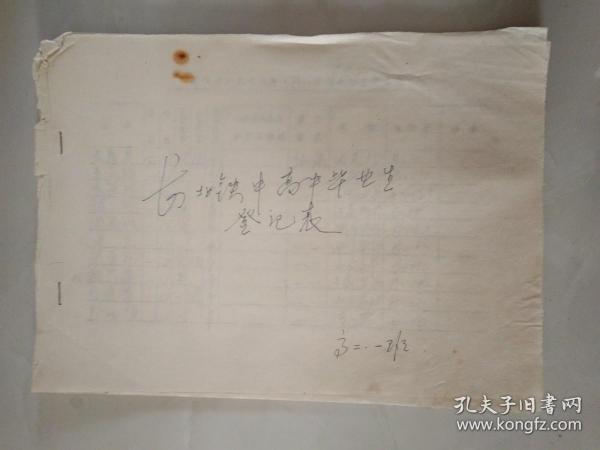 长北铁中高中毕业生
登记表
高二.一班.
孔夫子旧书网
www.kongfz.com